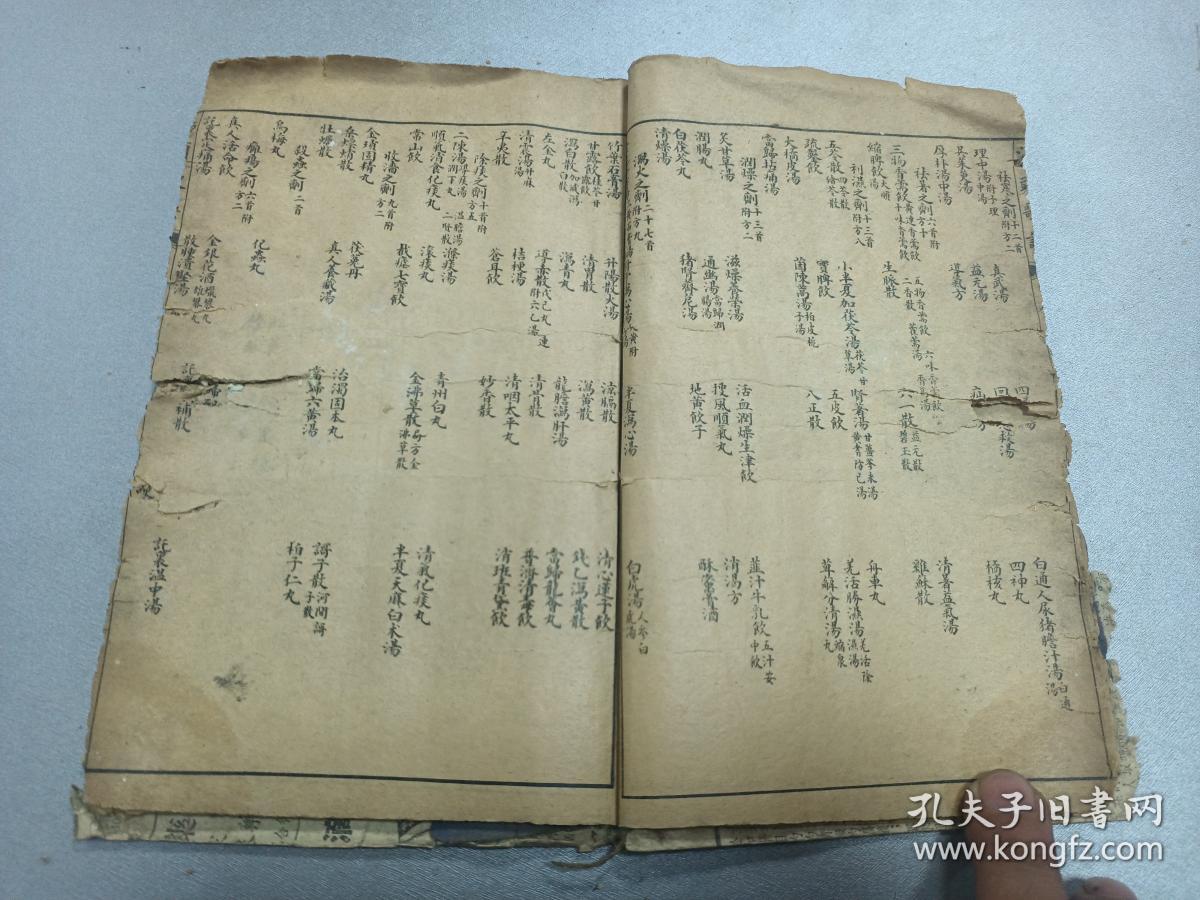 祛寒之劑十二首附方二
理中湯附子理中湯
真武湯
白通人尿豬膽汁湯白通湯
吳茱萸湯
益元湯
四神丸
厚朴温中湯
導氣方
橘核丸
祛暑之劑
三物香薷飲
生脈散
清暑益氣湯
縮脾飲大順散
六一散益元散碧玉散
雞蘇散
利濕之劑十三首附方八
五苓散四苓散
小半夏加茯苓湯茯苓甘草湯
腎著湯
舟車丸
疏鑿飲
實脾飲
五皮飲
羌活勝濕湯羌活除濕湯
大橘皮湯
茵陳蒿湯
八正散
萆薢分清湯縮泉丸
當歸拈痛湯
潤燥之劑十三首附方二
炙甘草湯
滋燥養榮湯
活血潤燥生津飲
韭汁牛乳飲五汁安中飲
潤腸丸
通幽湯當歸潤腸湯
搜風順氣丸
消渴方
白茯苓丸
豬腎薺苨湯
地黃飲子
酥蜜膏酒
清燥湯
瀉火之劑二十七首附方九
半夏瀉心湯
白虎湯
竹葉石膏湯
升陽散火湯
涼膈散
清心蓮子飲
甘露飲
清胃散
瀉黃散
錢乙瀉黃散
瀉白散
瀉青丸
龍膽瀉肝湯
當歸龍薈丸
左金丸
導赤散
清骨散
普濟消毒飲
清震湯
桔梗湯
清咽太平丸
消斑青黛飲
辛夷散
蒼耳飲
妙香散
除痰之劑十首附方五
二陳湯
滾痰丸
青州白丸
清氣化痰丸
順氣消食化痰丸
金沸草散局方金沸草散
半夏天麻白朮湯
常山飲
截瘧七寶飲
收濇之劑九首附方二
金鎖固精丸
茯菟丹
治濁固本丸
訶子散河間訶子散
桑螵蛸散
真人養臟湯
當歸六黃湯
柏子仁丸
牡蠣散
殺蟲之劑二首
烏梅丸
化蟲丸
癰瘍之劑六首附方二
真人活命飲
金銀花酒
托裏溫中湯
托裏定痛湯
散腫潰堅湯